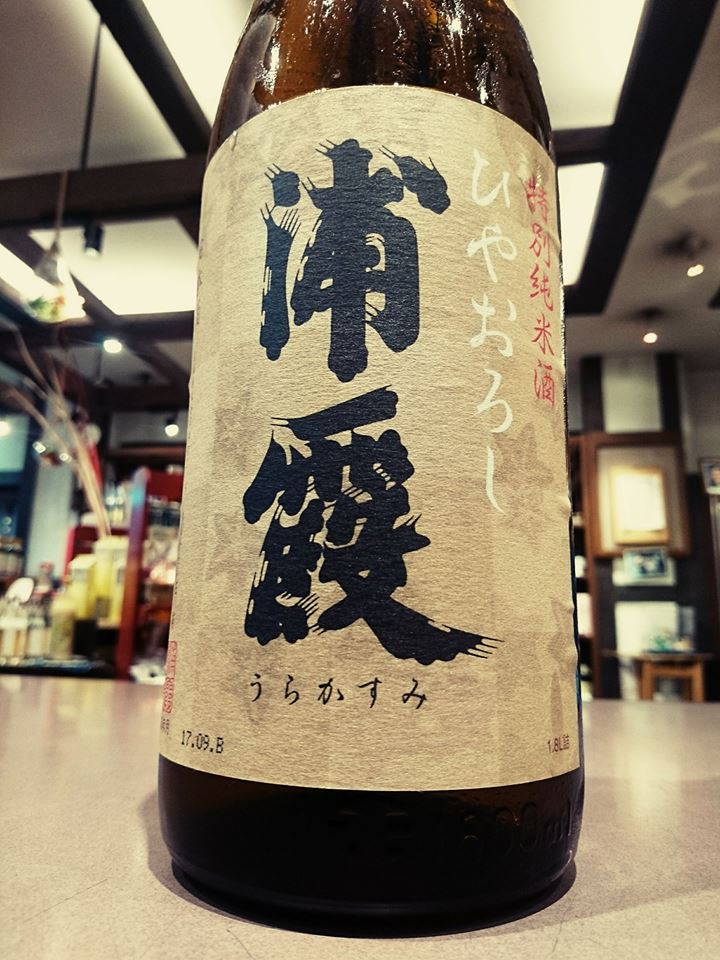 特別純米酒
ひやおろし
浦霞
うらかすみ
17.09.B
1.8L詰